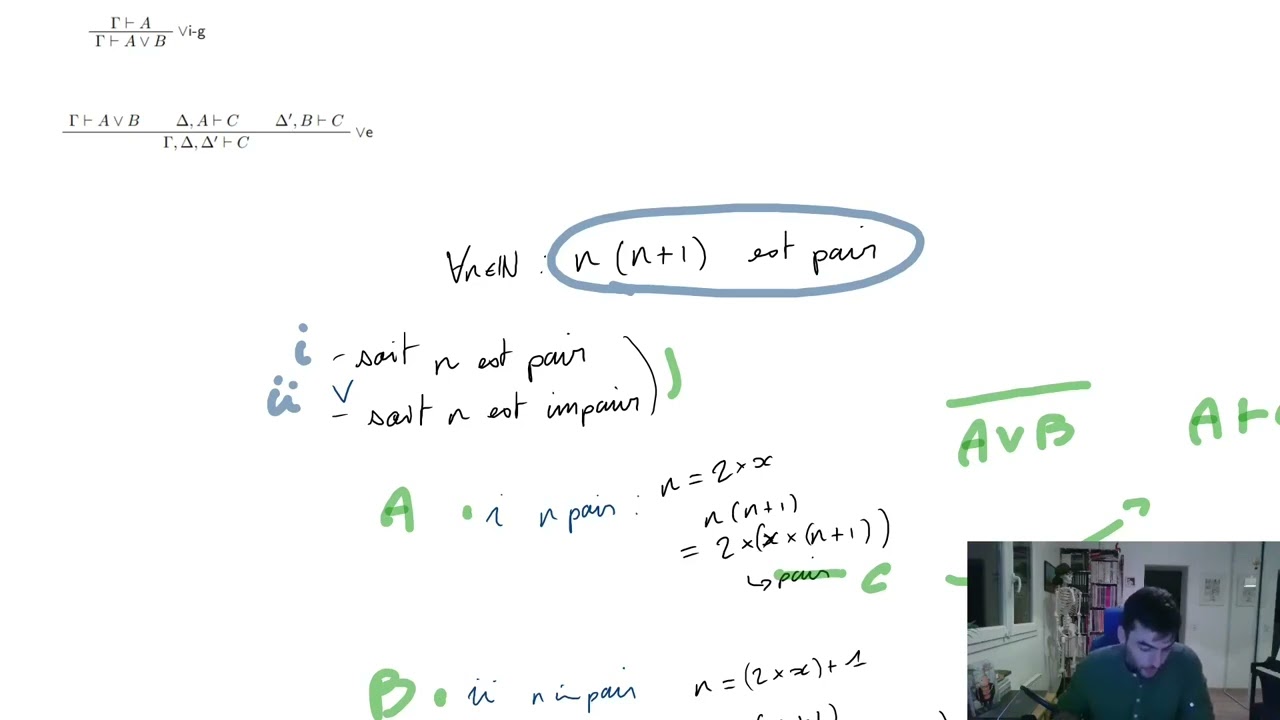 Γ ⊢ A
Γ ⊢ A ∨ B ∨i-g
Γ ⊢ A ∨ B Δ, A ⊢ C Δ′, B ⊢ C
Γ, Δ, Δ′ ⊢ C ∨e
∀n∈ℕ : n (n+1) est pair
i - soit n est pair
ii ∨ - soit n est impair
A ∨ B A ⊢
n = 2 × x
A • i n pair :
n (n+1)
= 2 × (x × (n+1))
↳ pair C
n = (2 × x) + 1
B • ii n impair